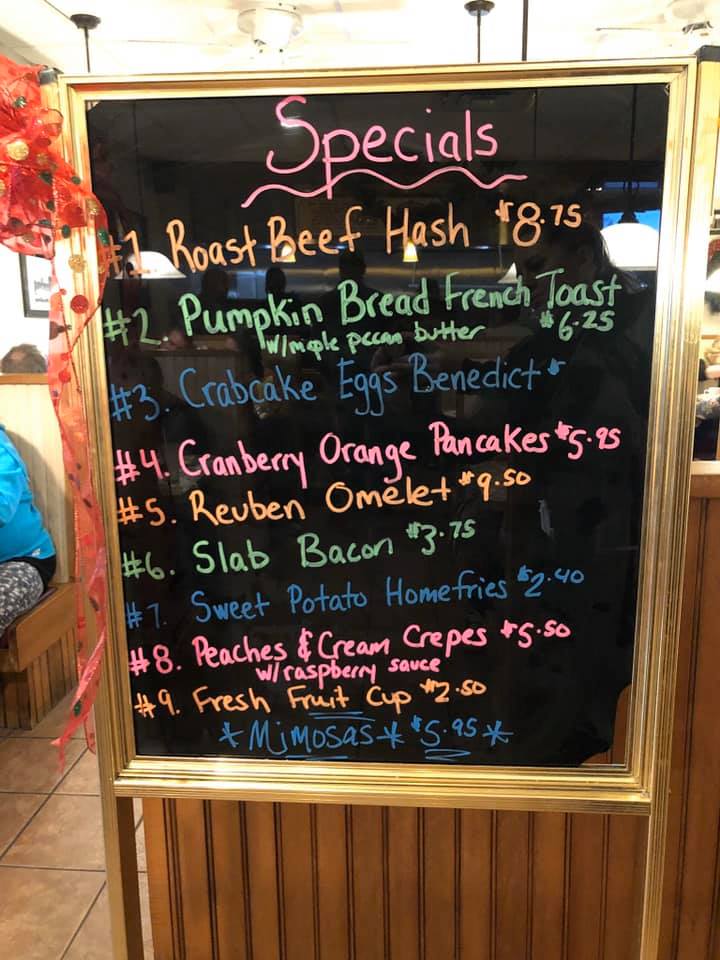 Specials
#1 Roast Beef Hash $8.75
#2. Pumpkin Bread French Toast
w/maple pecan butter $6.25
#3. Crabcake Eggs Benedict $
#4. Cranberry Orange Pancakes $5.95
#5. Reuben Omelet $9.50
#6. Slab Bacon $3.75
#7. Sweet Potato Homefries $2.40
#8. Peaches & Cream Crepes $5.50
w/raspberry sauce
#9. Fresh Fruit Cup $2.50
*Mimosas* $5.95*